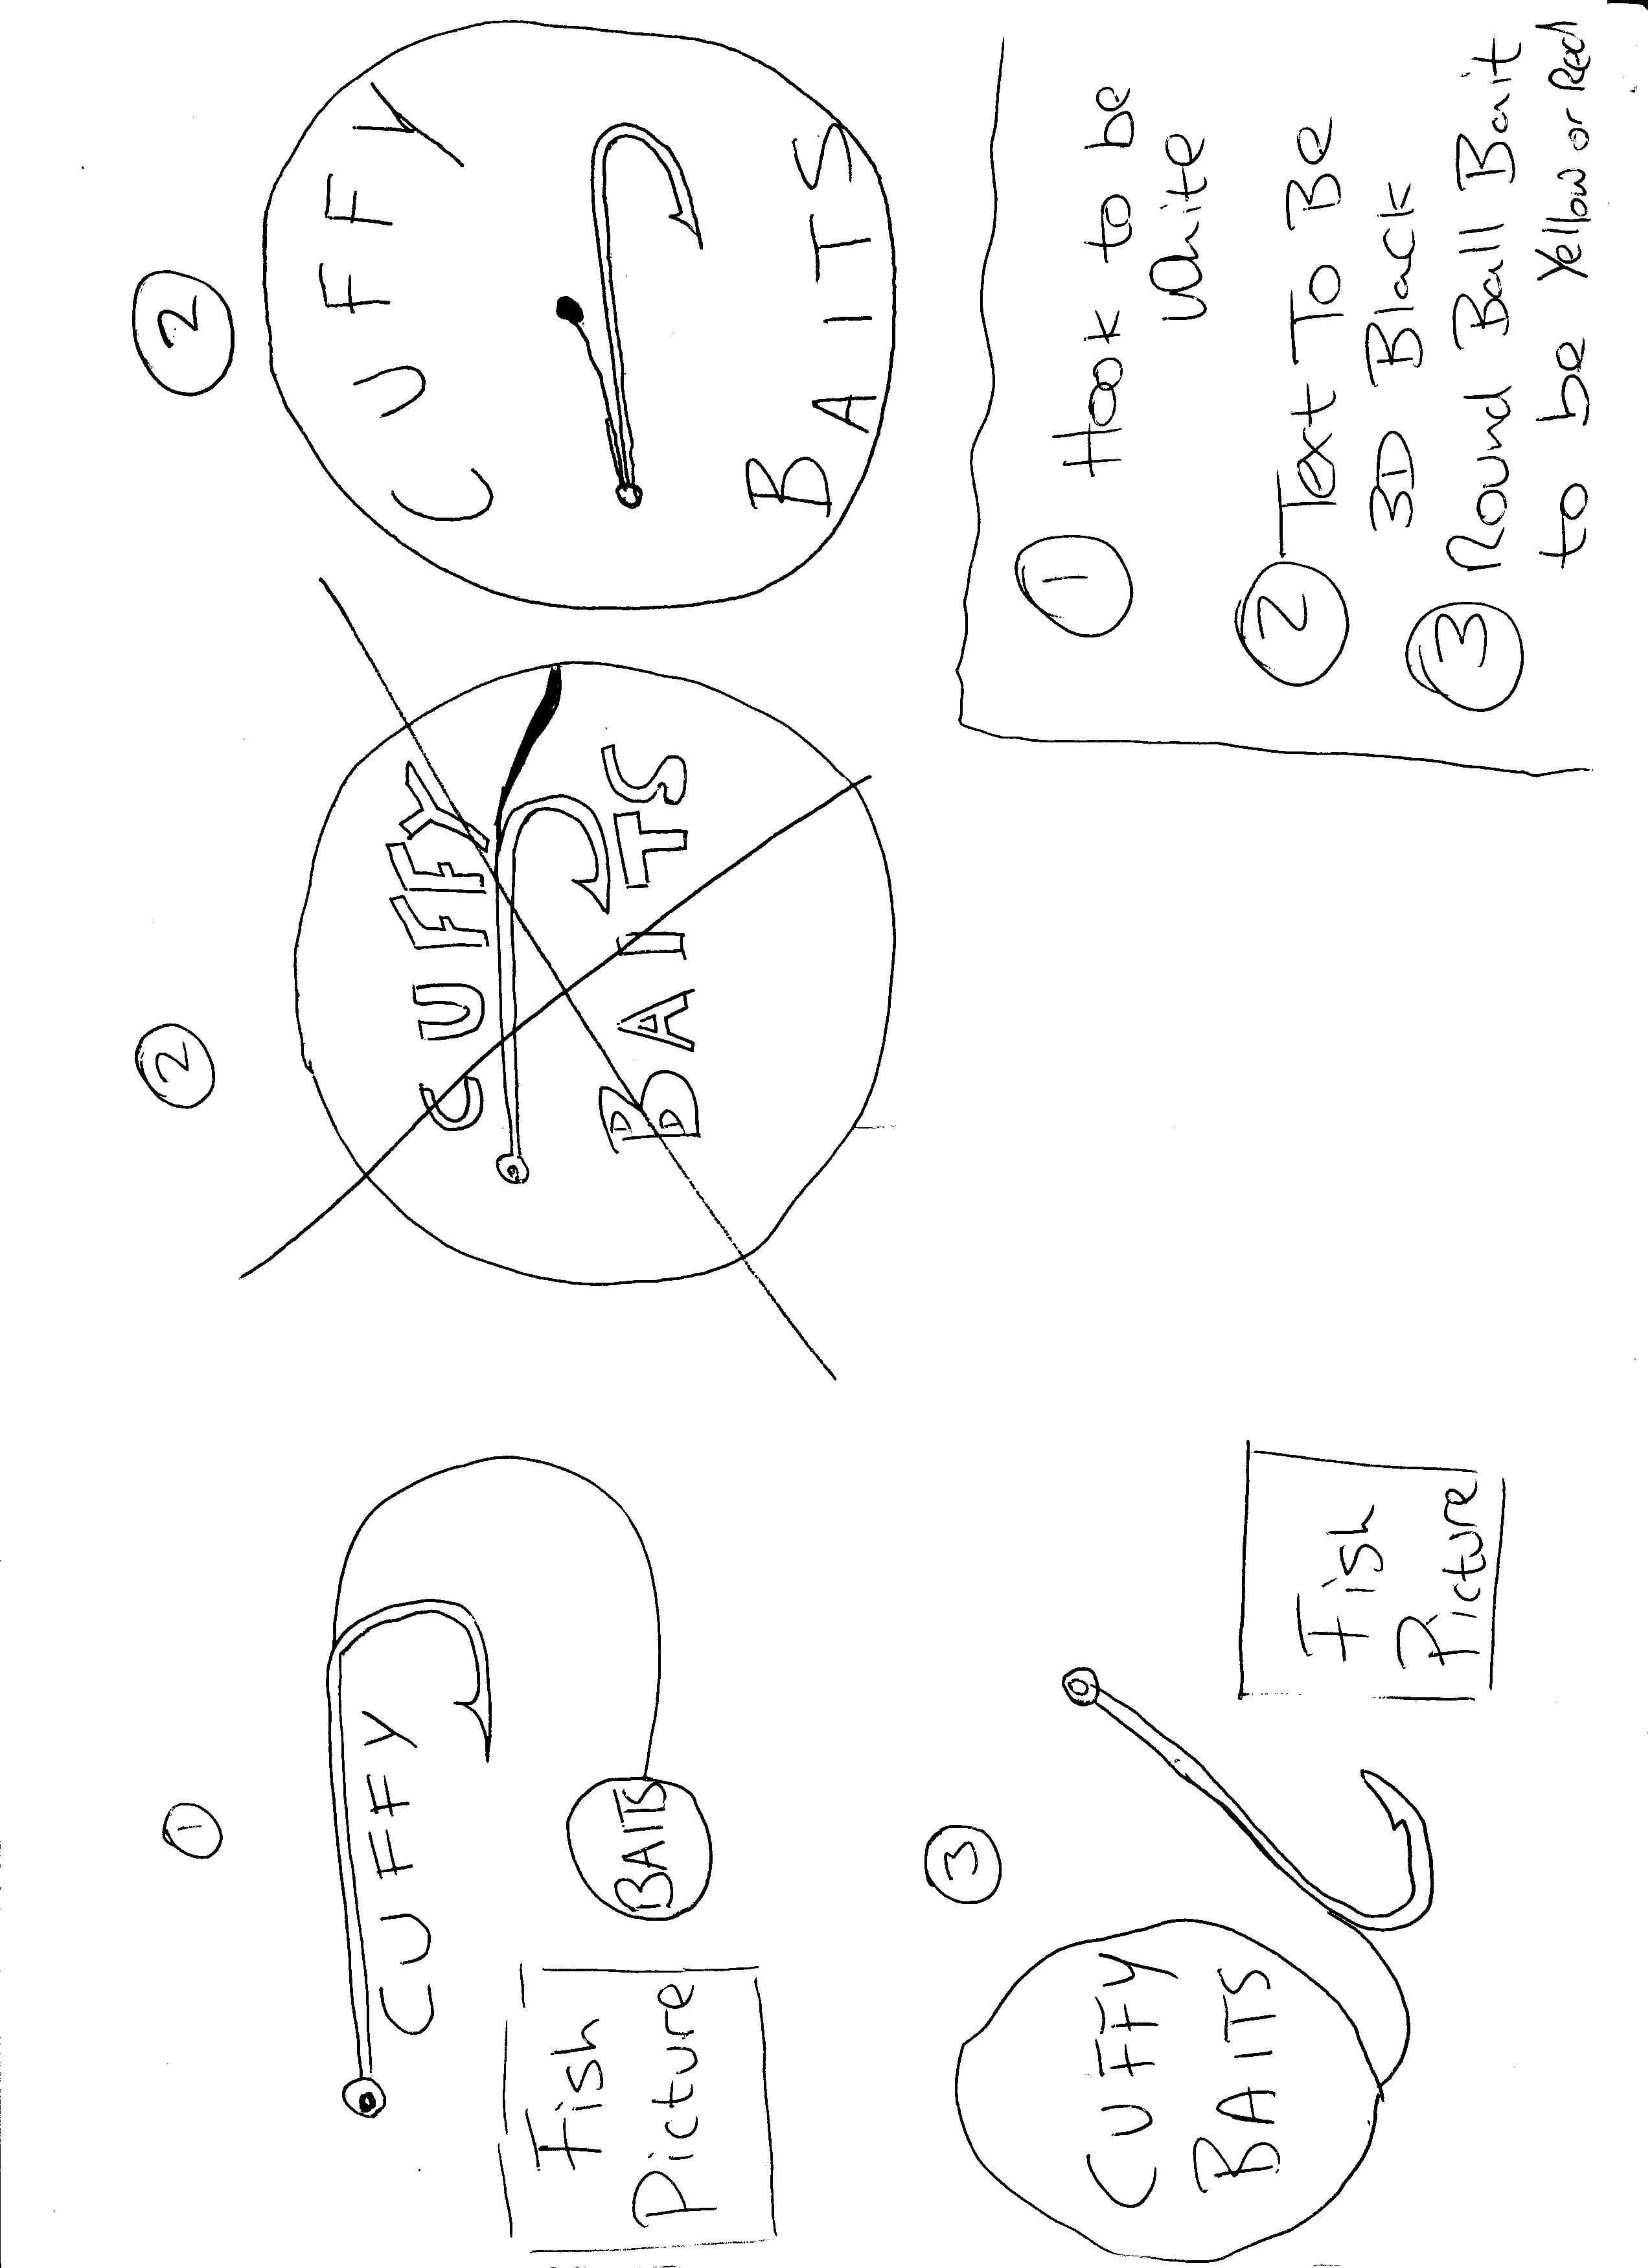 ①
CUFFY
BAITS
Fish
Picture
②
CUFFY
BAITS
②
CUFFY
BAITS
③
CUFFY
BAITS
Fish
Picture
① Hook to be
White
② Text To Be
3D Black
③ Round Ball Bait
to be Yellow or Red